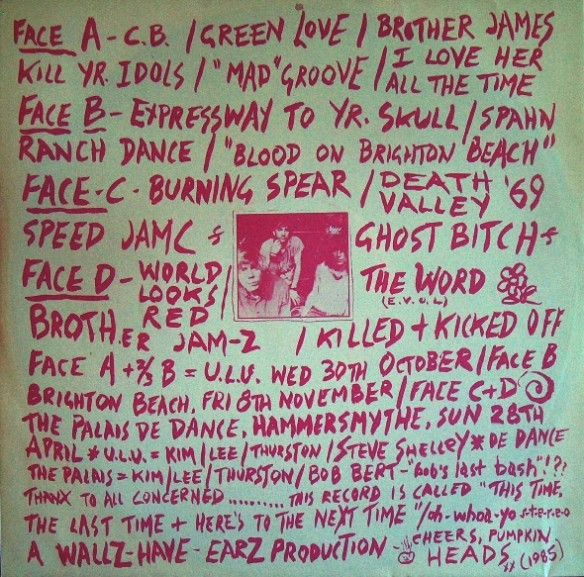 FACE A - C.B. / GREEN LOVE / BROTHER JAMES
KILL YR. IDOLS / "MAD" GROOVE / I LOVE HER
ALL THE TIME
FACE B - EXPRESSWAY TO YR. SKULL / SPAHN
RANCH DANCE / "BLOOD ON BRIGHTON BEACH"
FACE - C - BURNING SPEAR / DEATH
VALLEY '69
SPEED JAMC GHOST BITCH
FACE D - WORLD
LOOKS
RED / THE WORD
(E.V.O.L)
BROTH.ER JAM-Z / KILLED + KICKED OFF
FACE A + 2/3 B = U.L.U. WED 30TH OCTOBER / FACE B
BRIGHTON BEACH, FRI 8TH NOVEMBER / FACE C+D
THE PALAIS DE DANCE, HAMMERSMYTHE, SUN 28TH
APRIL * U.L.U. = KIM / LEE / THURSTON / STEVE SHELLEY * DE DANCE
THE PALAIS = KIM / LEE / THURSTON / BOB BERT - "Bob's last bash"!??
THANX TO ALL CONCERNED .......... THIS RECORD IS CALLED "THIS TIME,
THE LAST TIME + HERE'S TO THE NEXT TIME" /oh-whoa-yo s-t-e-r-e-o
A WALLZ-HAVE-EARZ PRODUCTION ~ CHEERS, PUMPKIN
HEADS xx (1985)